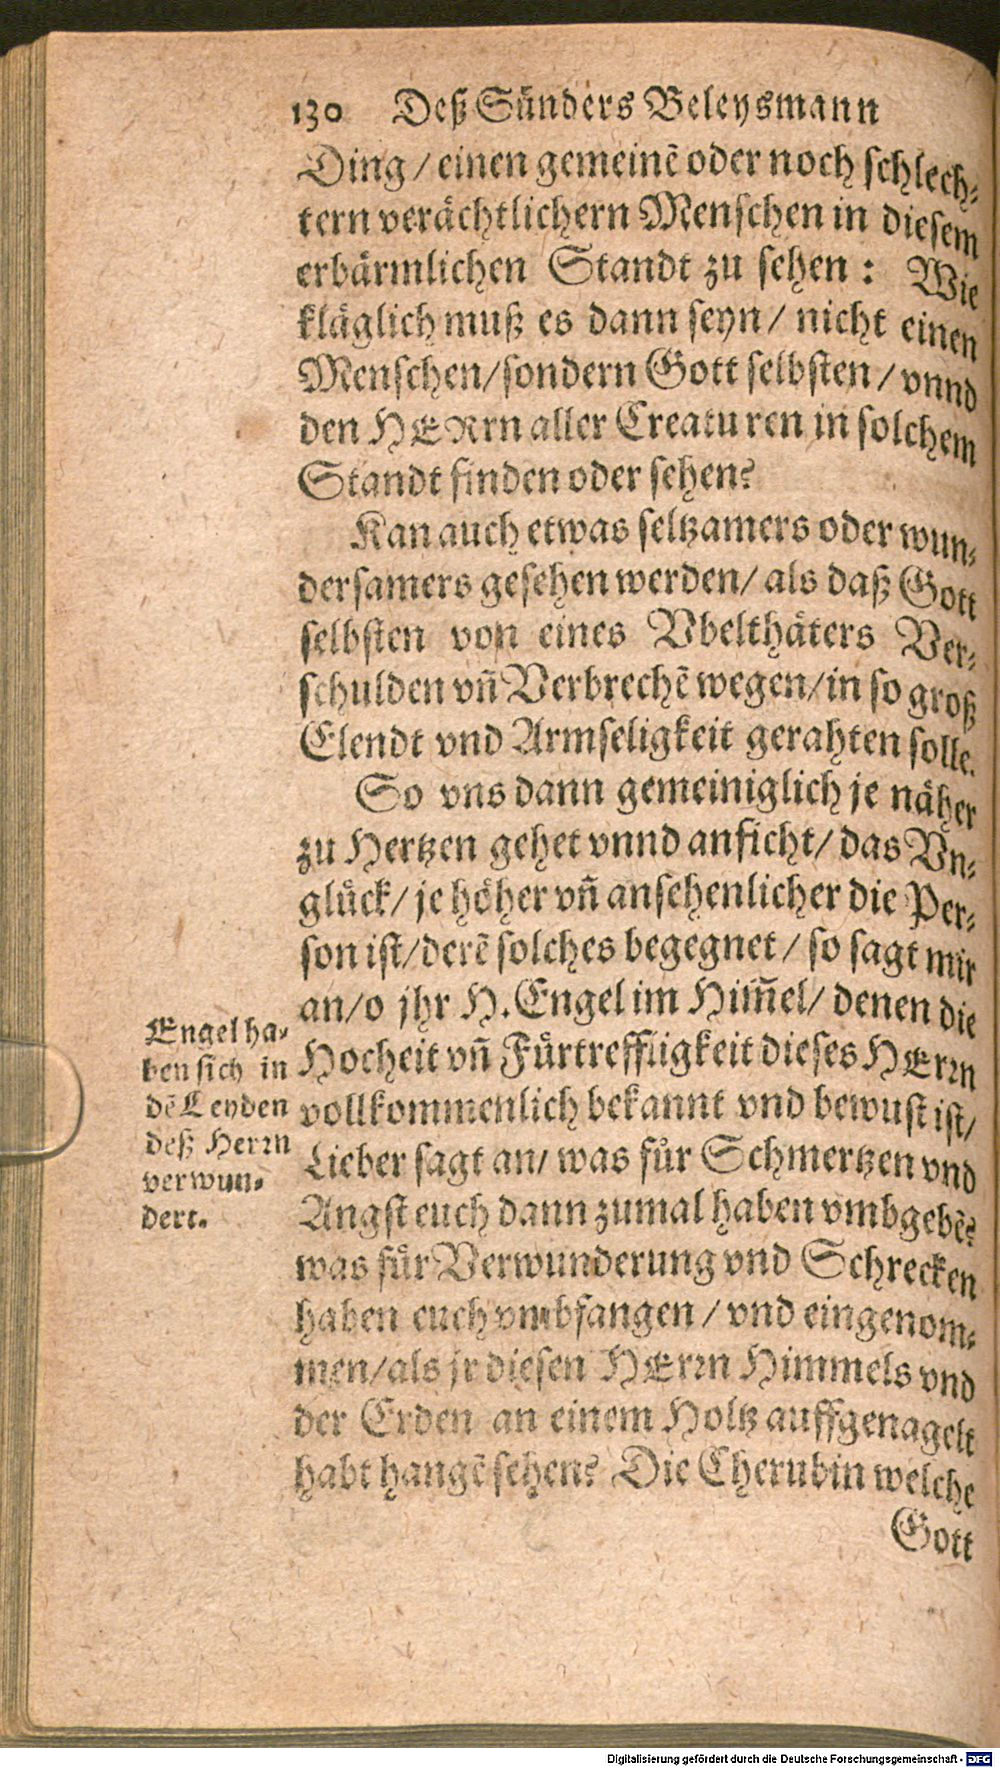 130 Deß Sünders Beleysmann
Ding / einen gemeinẽ oder noch schlech-
tern verächtlichern Menschen in diesem
erbärmlichen Standt zu sehen : Wie
kläglich muß es dann seyn / nicht einen
Menschen / sondern Gott selbsten / vnnd
den HERrn aller Creaturen in solchem
Standt finden oder sehen?
Kan auch etwas seltzamers oder wun-
dersamers gesehen werden / als daß Gott
selbsten von eines Vbelthäters Ver-
schulden vñ Verbrechẽ wegen / in so groß
Elendt vnd Armseligkeit gerahten solle.
So vns dann gemeiniglich je näher
zu Hertzen gehet vnnd anficht / das Vn-
glück / je höher vñ ansehenlicher die Per-
son ist / derẽ solches begegnet / so sagt mir
an / o jhr H. Engel im Him̃el / denen die
Hocheit vñ Fürtreffligkeit dieses HErꝛn
vollkommenlich bekannt vnd bewust ist /
Lieber sagt an / was für Schmertzen vnd
Angst euch dann zumal haben vmbgebẽ?
was für Verwunderung vnd Schrecken
haben euch vmbfangen / vnd eingenom-
men / als jr diesen HErꝛn Himmels vnd
der Erden an einem Holtz auffgenagelt
habt hangẽ sehen? Die Cherubin welche
Gott
Engel ha-
ben sich in
dẽ Leyden
deß Herꝛn
verwun-
dert.
Digitalisierung gefördert durch die Deutsche Forschungsgemeinschaft - DFG